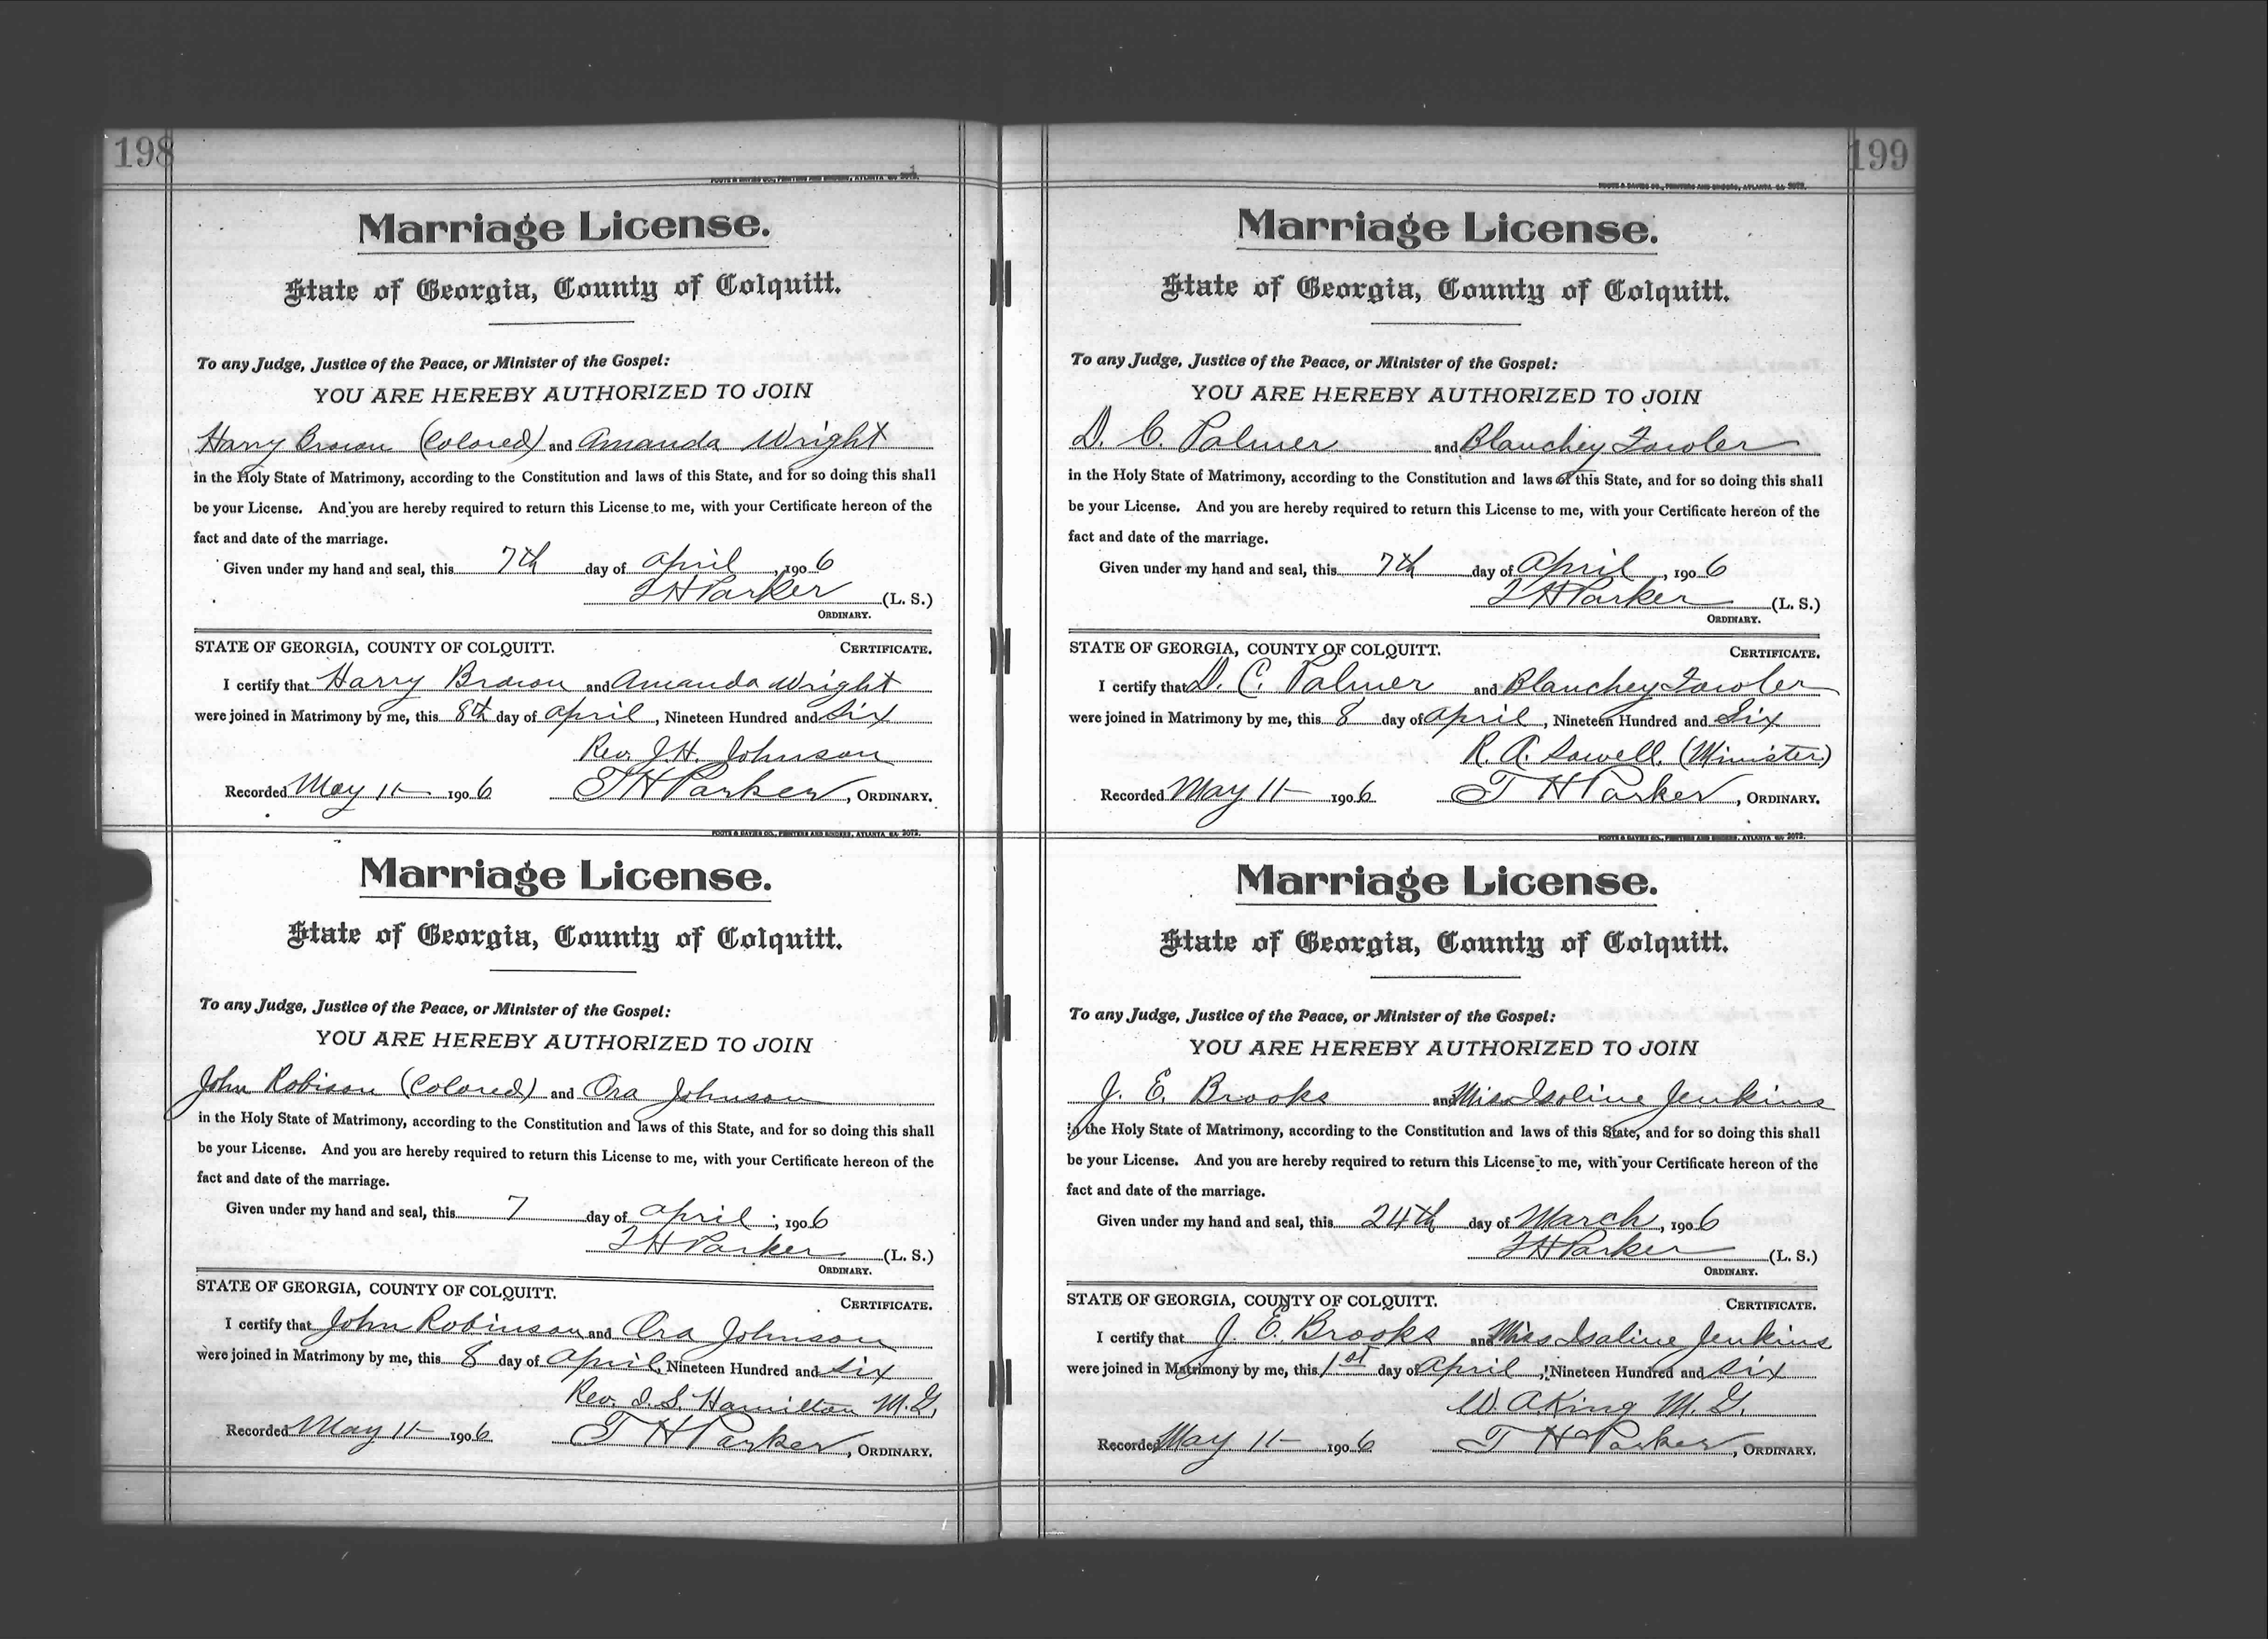 198
FOOTE & DAVIES CO., PRINTERS AND BINDERS, ATLANTA GA. 2072.
Marriage License.
State of Georgia, County of Colquitt.
To any Judge, Justice of the Peace, or Minister of the Gospel:
YOU ARE HEREBY AUTHORIZED TO JOIN
Harry Brown (Colored) and Amanda Wright
in the Holy State of Matrimony, according to the Constitution and laws of this State, and for so doing this shall
be your License. And you are hereby required to return this License to me, with your Certificate hereon of the
fact and date of the marriage.
Given under my hand and seal, this 7th day of April, 1906
T H Parker (L. S.)
ORDINARY.
STATE OF GEORGIA, COUNTY OF COLQUITT. CERTIFICATE.
I certify that Harry Brown and Amanda Wright
were joined in Matrimony by me, this 8th day of April, Nineteen Hundred and Six
Rev. J. H. Johnson
Recorded May 11 1906 T H Parker, ORDINARY.
FOOTE & DAVIES CO., PRINTERS AND BINDERS, ATLANTA GA. 2072.
Marriage License.
State of Georgia, County of Colquitt.
To any Judge, Justice of the Peace, or Minister of the Gospel:
YOU ARE HEREBY AUTHORIZED TO JOIN
John Robison (Colored) and Ora Johnson
in the Holy State of Matrimony, according to the Constitution and laws of this State, and for so doing this shall
be your License. And you are hereby required to return this License to me, with your Certificate hereon of the
fact and date of the marriage.
Given under my hand and seal, this 7 day of April, 1906
T H Parker (L. S.)
ORDINARY.
STATE OF GEORGIA, COUNTY OF COLQUITT. CERTIFICATE.
I certify that John Robinson and Ora Johnson
were joined in Matrimony by me, this 8 day of April, Nineteen Hundred and Six
Rev. I. S. Hamilton M. G.
Recorded May 11 1906 T H Parker, ORDINARY.
199
FOOTE & DAVIES CO., PRINTERS AND BINDERS, ATLANTA GA. 2072.
Marriage License.
State of Georgia, County of Colquitt.
To any Judge, Justice of the Peace, or Minister of the Gospel:
YOU ARE HEREBY AUTHORIZED TO JOIN
D. C. Palmer and Blanchey Fowler
in the Holy State of Matrimony, according to the Constitution and laws of this State, and for so doing this shall
be your License. And you are hereby required to return this License to me, with your Certificate hereon of the
fact and date of the marriage.
Given under my hand and seal, this 7th day of April, 1906
T H Parker (L. S.)
ORDINARY.
STATE OF GEORGIA, COUNTY OF COLQUITT. CERTIFICATE.
I certify that D. C. Palmer and Blanchey Fowler
were joined in Matrimony by me, this 8 day of April, Nineteen Hundred and Six
R. A. Sowell. (Minister)
Recorded May 11 1906 T H Parker, ORDINARY.
FOOTE & DAVIES CO., PRINTERS AND BINDERS, ATLANTA GA. 2072.
Marriage License.
State of Georgia, County of Colquitt.
To any Judge, Justice of the Peace, or Minister of the Gospel:
YOU ARE HEREBY AUTHORIZED TO JOIN
J. E. Brooks and Miss Isoline Jenkins
in the Holy State of Matrimony, according to the Constitution and laws of this State, and for so doing this shall
be your License. And you are hereby required to return this License to me, with your Certificate hereon of the
fact and date of the marriage.
Given under my hand and seal, this 24th day of March, 1906
T H Parker (L. S.)
ORDINARY.
STATE OF GEORGIA, COUNTY OF COLQUITT. CERTIFICATE.
I certify that J. E. Brooks and Miss Isaline Jenkins
were joined in Matrimony by me, this 1st day of April, Nineteen Hundred and Six
W. A King M. G.
Recorded May 11 1906 T H Parker, ORDINARY.